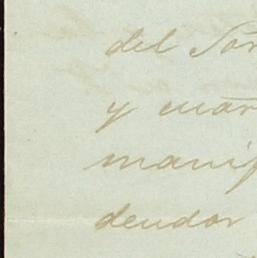 del Sor
y cuar
manif
deudor